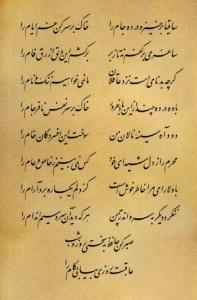 ساقیا برخیز و درده جام را خاک بر سر کن غم ایام را
ساغر می بر کفم نه تا ز بر برکشم این دلق ازرق فام را
گرچه بدنامی است نزد عاقلان ما نمی‌خواهیم ننگ و نام را
باده درده چند ازین باد غرور خاک بر سر نفس نافرجام را
دود آه سینه نالان من سوخت این افسردگان خام را
محرم راز دل شیدای خود کس نمی‌بینم ز خاص و عام را
با دلارامی مرا خاطر خوش است کز دلم یکباره برد آرام را
ننگرد دیگر به سرو اندر چمن هر که دید آن سرو سیم اندام را
صبر کن حافظ به سختی روز و شب
عاقبت روزی بیابی کام را